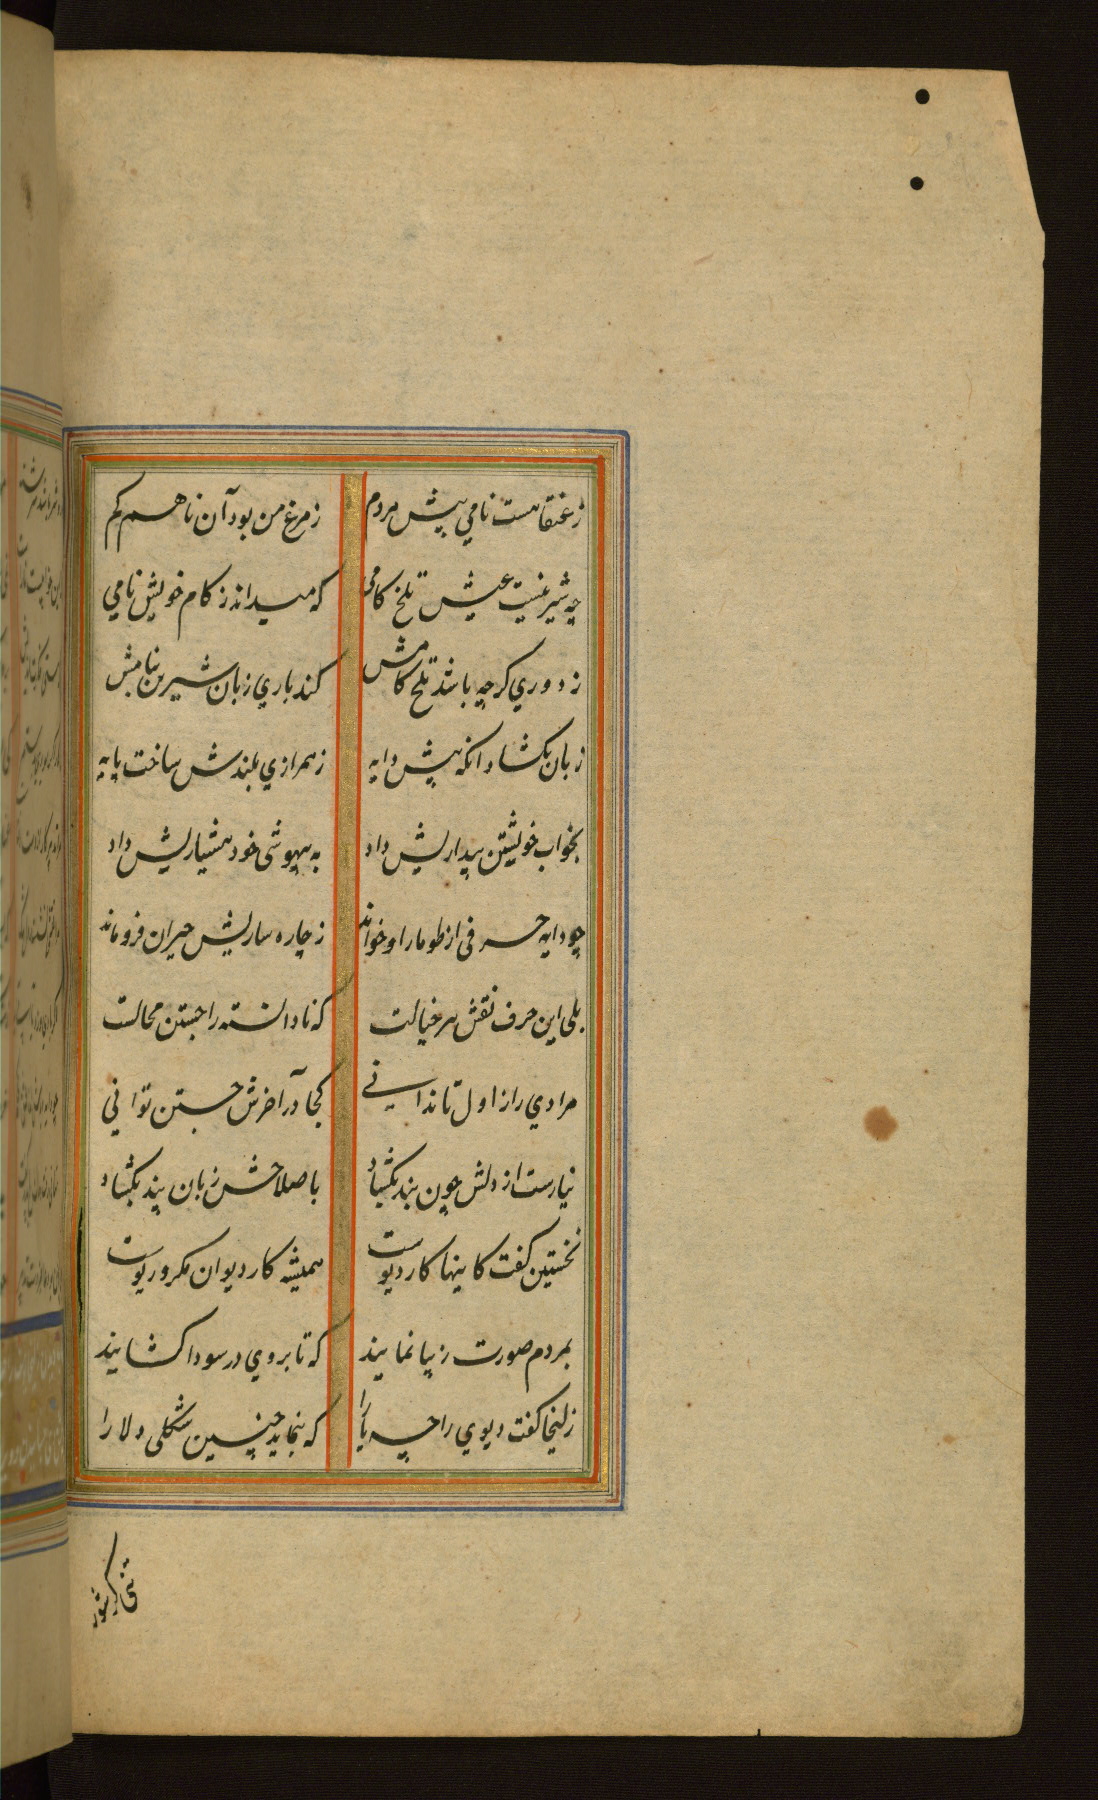 ز عنقا هست نامی پیش مردم ز مرغ من بود آن نام هم کم
چه شیرینست عیش تلخ کامی که میداند ز کام خویش نامی
ز دوری کرچه باشد تلخ کامش کند باری زبان شیرین بنامش
زبان بکشاد انکه پیش دایه ز همرازی بلندش ساخت پایه
بخواب خویشتن بیداریش داد به بیهوشی خود هشیاریش داد
چو دایه حرفی از طومار او خواند ز چاره سازیش حیران فرو ماند
بلی این حرف نقش هر خیالست که نادانسته را جستن محالست
مرادی را ز اول تا ندانی کجا در آخرش جستن توانی
نیارست از دلش چون بند بکشاد باصلاحش زبان پند بکشاد
نخستین کفت کاینها کار دیوست همیشه کار دیوان مکر و ریوست
بمردم صورت زیبا نمایند که تا بروی در سودا کشایند
زلیخا کفت دیوی را چه یارا که بنماید چنین شکلی دلارا